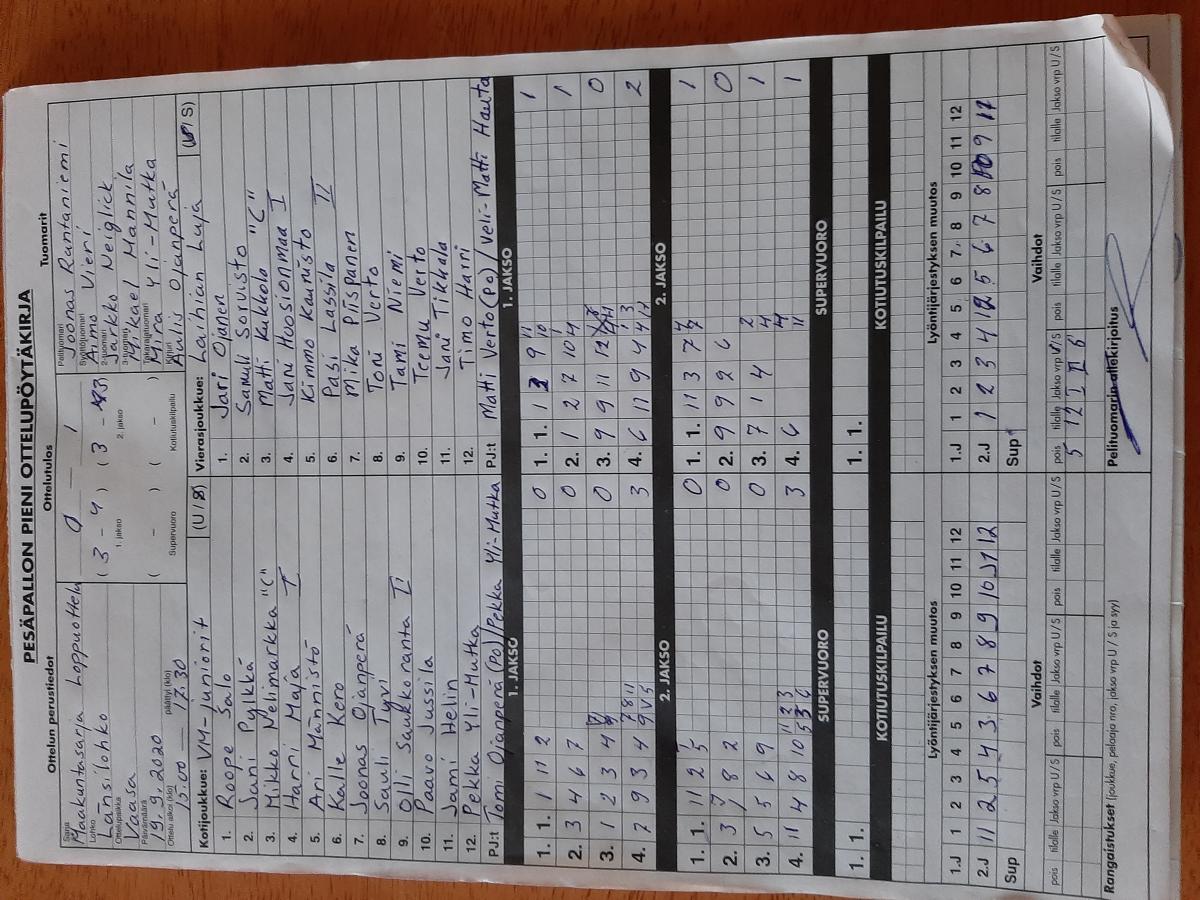 PESÄPALLON PIENI OTTELUPÖYTÄKIRJA
Ottelun perustiedot
Sarja
Maakuntasarja Loppuottelu
Lohko
Länsilohko
Ottelupaikka
Vaasa
Päivämäärä
19.9.2020
Ottelu alkoi (klo) päättyi (klo)
15.00
Ottelutulos
0 — 1
( 3 - 4 ) ( 3 - 3 )
1. jakso 2. jakso
( - ) ( - )
Supervuoro Kotiutuskilpailu
Tuomarit
Pelituomari
Joonas Rantaniemi
Syöttötuomari
Aimo Vieri
2-tuomari
Jarkko Neiglick
3-tuomari
Mikael Mannila
Takarajatuomari
Mira Yli-Mutka
Kirjuri
Aulis Ojanperä
Kotijoukkue: VM-Juniorit (U / S)
1. Roope Salo
2. Jani Pylkkä
3. Mikko Nelimarkka "C"
4. Harri Maja I
5. Ari Männistö
6. Kalle Kero
7. Joonas Ojanperä
8. Sauli Tyvi
9. Olli Saukkoranta II
10. Paavo Jussila
11. Jami Helin
12. Pekka Yli-Mutka
PJ:t Tomi Ojanperä (Po) / Pekka Yli-Mutka
Vierasjoukkue: Laihian Luja (U / S)
1. Jari Ojanen
2. Samuli Sorvisto
3. Matti Kukkola "C"
4. Jani Huosionmaa I
5. Kimmo Kaunisto
6. Pasi Lassila II
7. Mika Piispanen
8. Toni Verto
9. Tami Niemi
10. Teemu Verto
11. Jani Tikkala
12. Timo Harri
PJ:t Matti Verto (po) / Veli-Matti Hauta
1. JAKSO
1. 1. 1 11 2 0
2. 3 4 6 7 0
3. 1 2 3 4 0
4. 7 9 3 4 3
1. JAKSO
1. 1. 1 9 1
2. 1 2 7 10 1
3. 9 9 11 12 0
4. 6 11 9 4 2
2. JAKSO
1. 1. 11 2 5 0
2. 3 7 8 2 0
3. 5 5 6 9 0
4. 11 4 8 10 3
2. JAKSO
1. 1. 11 3 7 1
2. 9 9 2 6 0
3. 7 1 4 1
4. 6 1
SUPERVUORO
1. 1.
SUPERVUORO
1. 1.
KOTIUTUSKILPAILU
KOTIUTUSKILPAILU
Lyöntijärjestyksen muutos
1 2 3 4 5 6 7 8 9 10 11 12
1.J
2.J 11 2 5 4 3 6 7 8 9 10 1 12
Sup
Lyöntijärjestyksen muutos
1 2 3 4 5 6 7 8 9 10 11 12
1.J
2.J 1 2 3 4 12 5 6 7 8 10 9 11
Sup
Vaihdot
pois tilalle Jakso vrp U / S pois tilalle Jakso vrp U / S pois tilalle Jakso vrp U / S
Vaihdot
pois tilalle Jakso vrp U / S pois tilalle Jakso vrp U / S pois tilalle Jakso vrp U / S
5 12 I II 6
Rangaistukset (joukkue, pelaaja nro, jakso vrp U / S ja syy)
Pelituomarin allekirjoitus